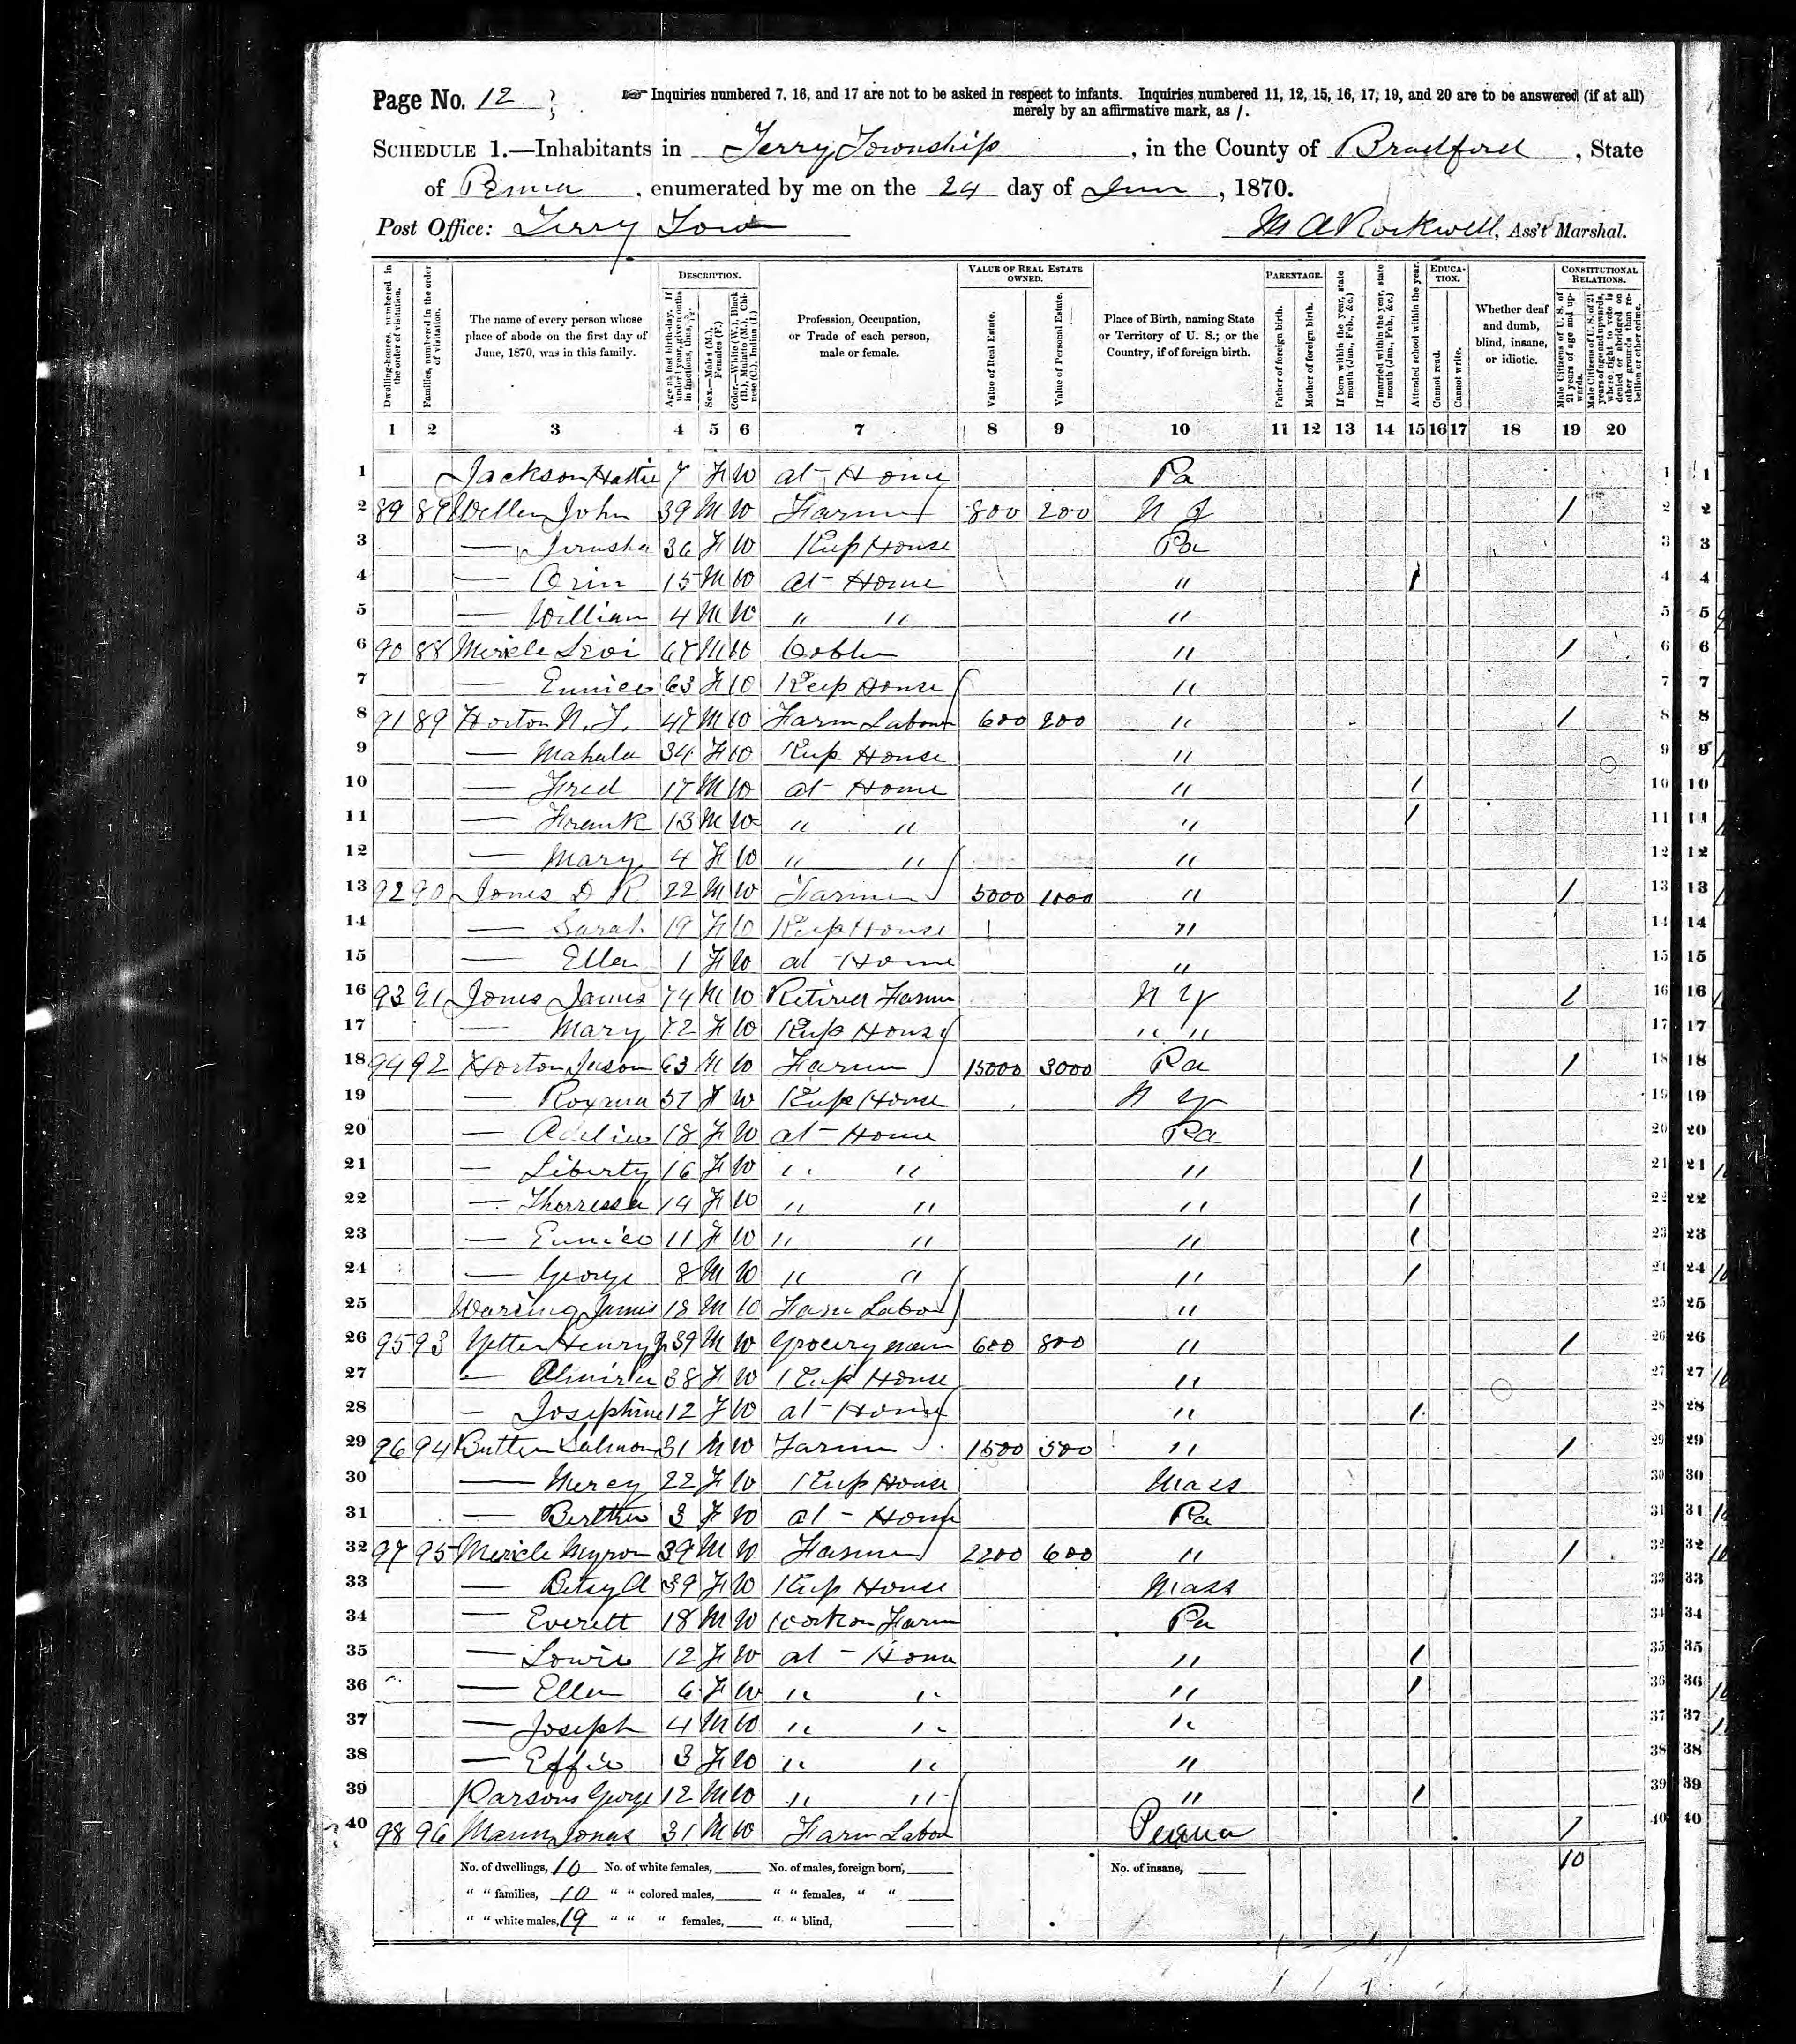 Page No. 12
☞ Inquiries numbered 7, 16, and 17 are not to be asked in respect to infants. Inquiries numbered 11, 12, 15, 16, 17, 19, and 20 are to be answered (if at all)
merely by an affirmative mark, as /.
SCHEDULE 1.—Inhabitants in Terry Township, in the County of Bradford, State
of Penna, enumerated by me on the 24 day of June, 1870.
Post Office: Terry Town
M A Rockwell, Ass't Marshal.
Dwelling-houses, numbered in the order of visitation.
Families, numbered in the order of visitation.
The name of every person whose place of abode on the first day of June, 1870, was in this family.
DESCRIPTION.
Age at last birth-day. If under 1 year, give months in fractions, thus, 3/12.
Sex.—Males (M.), Females (F.)
Color.—White (W.), Black (B.), Mulatto (M.), Chinese (C.), Indian (I.)
Profession, Occupation, or Trade of each person, male or female.
VALUE OF REAL ESTATE OWNED.
Value of Real Estate.
Value of Personal Estate.
Place of Birth, naming State or Territory of U. S.; or the Country, if of foreign birth.
PARENTAGE.
Father of foreign birth.
Mother of foreign birth.
If born within the year, state month (Jan., Feb., &c.)
If married within the year, state month (Jan., Feb., &c.)
Attended school within the year.
EDUCATION.
Cannot read.
Cannot write.
Whether deaf and dumb, blind, insane, or idiotic.
CONSTITUTIONAL RELATIONS.
Male Citizens of U. S. of 21 years of age and upwards.
Male Citizens of U. S. of 21 years of age and upwards, where right to vote is denied or abridged on other grounds than rebellion or other crime.
1 2 3 4 5 6 7 8 9 10 11 12 13 14 15 16 17 18 19 20
1 Jackson Hattie 7 F W at Home Pa 1
2 89 John 39 M W Farmer 800 200 N J / 2
3 — Jerusha 36 F W Keep House Pa 3
4 — Orin 15 M W at Home " / 4
5 — William 4 M W " " " 5
6 90 88 Mericle Levi 67 M W Cobbler " / 6
7 — Eunice 63 F W Keep House " 7
8 91 89 Horton N. J. 47 M W Farm Laborer 600 200 " / 8
9 — Mahala 34 F W Keep House " 9
10 — Fred 17 M W at Home " / 10
11 — Frank 13 M W " " " / 11
12 — Mary 4 F W " " " 12
13 92 90 Jones D R 22 M W Farmer 5000 1000 " / 13
14 — Sarah 19 F W Keep House " 14
15 — Ellen 1 F W at Home " 15
16 93 91 Jones James 74 M W Retired Farmer N Y / 16
17 — Mary 72 F W Keep House " " 17
18 94 92 Horton Jason 63 M W Farmer 15000 3000 Pa / 18
19 — Roxana 57 F W Keep House N Y 19
20 — Adeline 18 F W at Home Pa 20
21 — Liberty 16 F W " " " / 21
22 — Therressa 14 F W " " " / 22
23 — Eunice 11 F W " " " / 23
24 — George 8 M W " " " / 24
25 Warring James 18 M W Farm Labor " 25
26 95 93 Yetter Henry J 39 M W Grocery man 600 800 " / 26
27 — Almira 38 F W Keep House " 27
28 — Josephine 12 F W at Home " / 28
29 96 94 Salmon 31 M W Farmer 1500 500 " / 29
30 — Mercy 22 F W Keep House Mass 30
31 — Bertha 3 F W at - Home Pa 31
32 97 95 Mericle Myron 39 M W Farmer 2200 600 " / 32
33 — Betsy A 39 F W Keep House Mass 33
34 — Everett 18 M W Work on Farm Pa 34
35 — 12 F W at - Home " / 35
36 — Ellen 6 F W " " " / 36
37 — Joseph 4 M W " " " 37
38 — Effie 3 F W " " " 38
39 Parsons George 12 M W " " " / 39
40 98 96 Mann Jonas 31 M W Farm Labor Penna / 40
No. of dwellings, 10 No. of white females, No. of males, foreign born, No. of insane, 10
" " families, 10 " " colored males, " " females, " "
" " white males, 19 " " " females, " " blind,